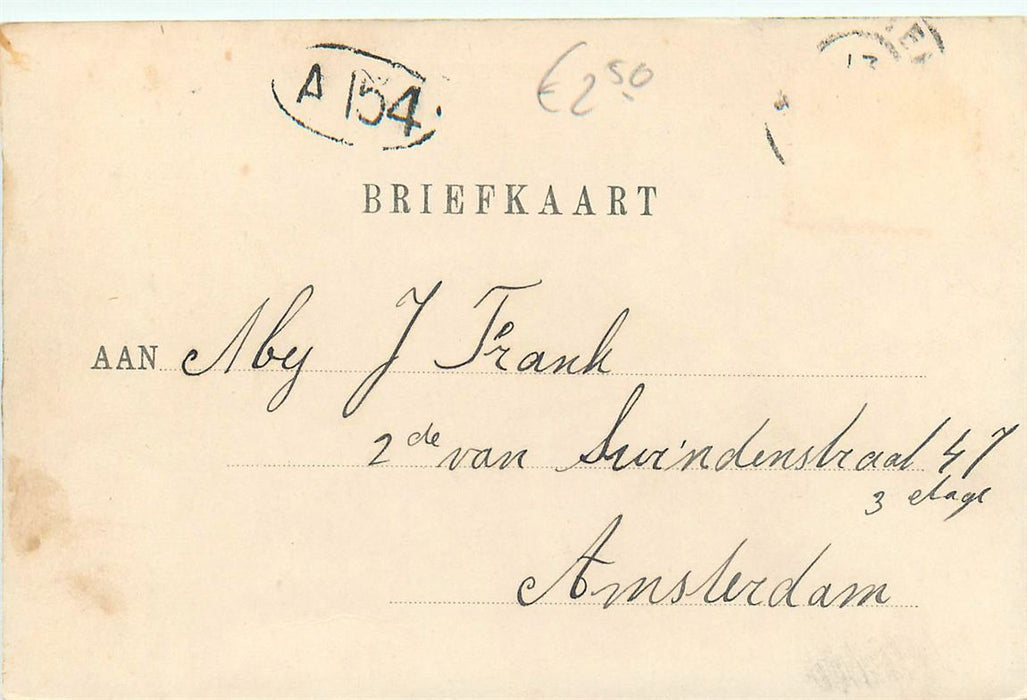 A 154.
€2,50
EN
12
BRIEFKAART
AAN Mej J Frank
2de van Swindenstraat 47
3 etage
Amsterdam